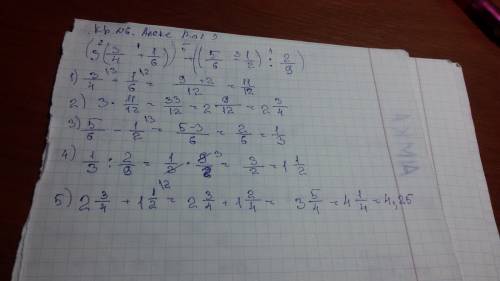 (3(3/4 + 1/6)) + ((5/6 - 1/2) : 2/9)
1) 3/4 + 1/6 = 9+2/12 = 11/12
2) 3 · 11/12 = 33/12 = 2 9/12 = 2 3/4
3) 5/6 - 1/2 = 5-3/6 = 2/6 = 1/3
4) 1/3 : 2/9 = 1/3 · 9/2 = 3/2 = 1 1/2
5) 2 3/4 + 1 1/2 = 2 3/4 + 1 2/4 = 3 5/4 = 4 1/4 = 4,25